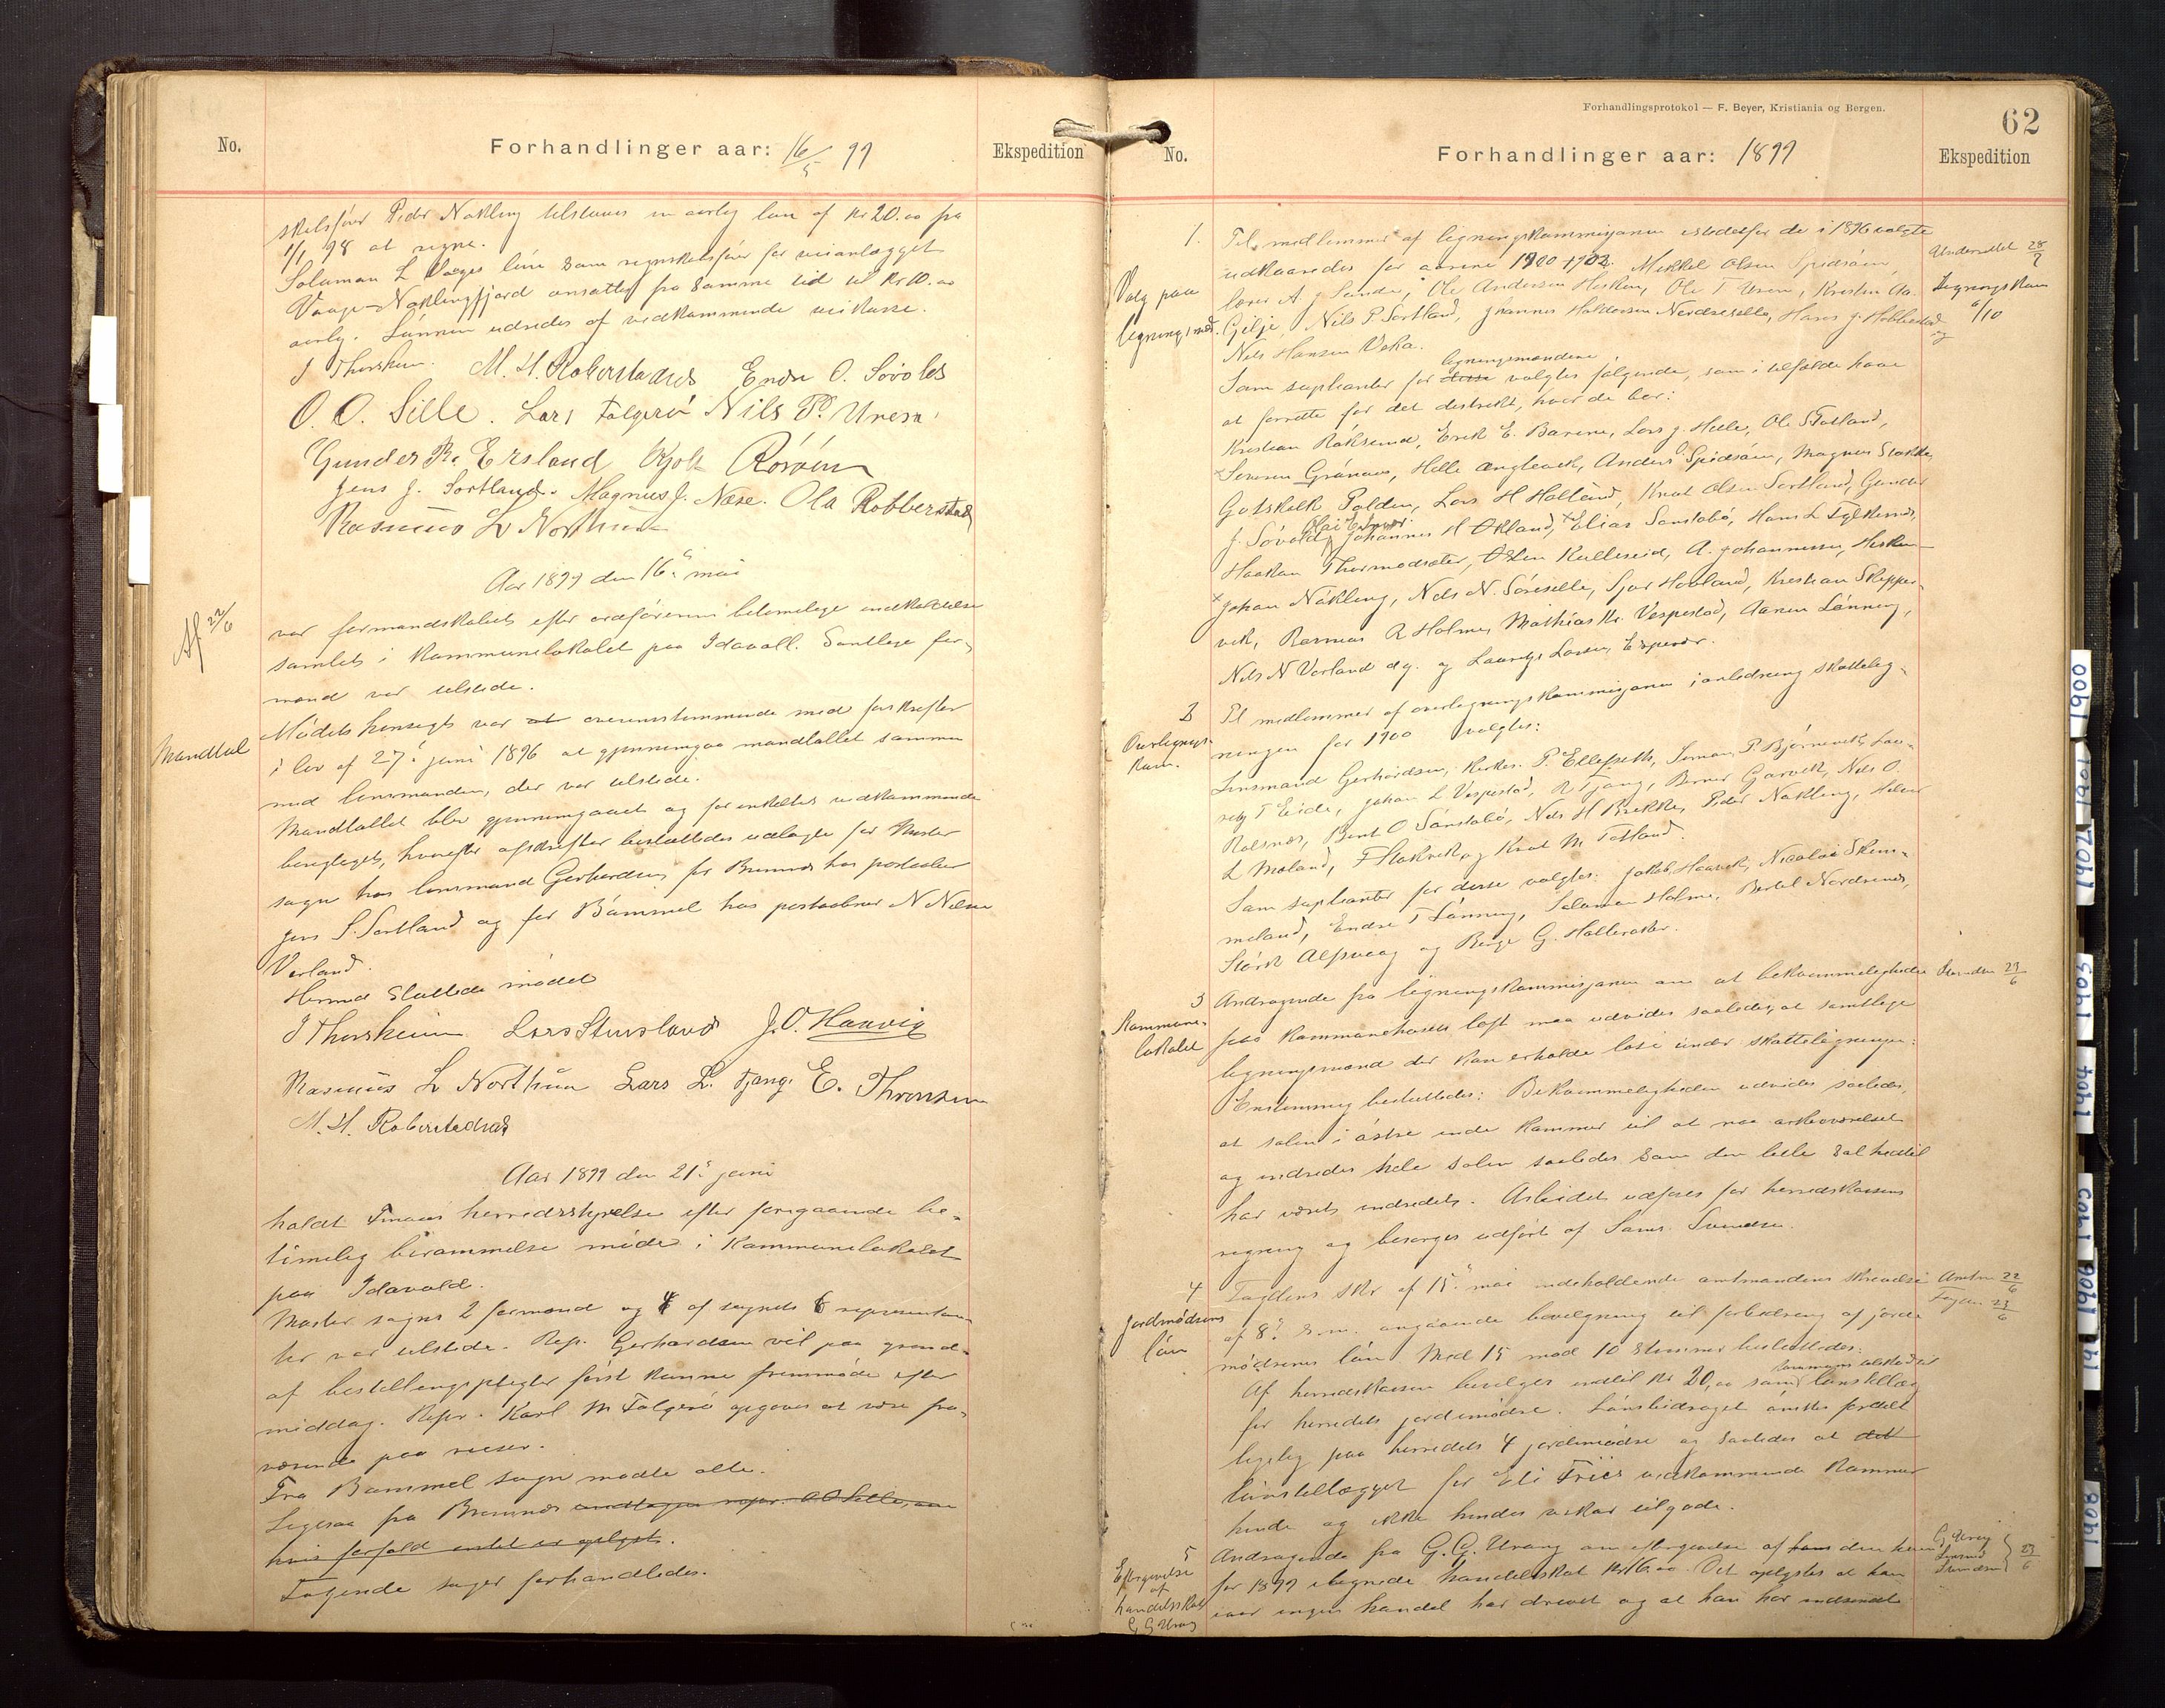 No.
Forhandlinger aar: 16/5 99
Ekspedition
skabsfører Peder Nøkling tilstaaes en aarlig løn af kr 20.00 fra
1/1 98 at regne.
Salamon L Vaages løn som regnskabsfører for veianlægget
Vaage-Nøklingfjord ansattes fra samme tid til kr 10.00
aarlig. Lønnen udredes af vedkommende veikasse.
J Thorsheim. M. H. Roberstadnes Endre O. Søvold
O. O. Lille. Lars Folgerø Nils P. Urem
Gunder R. Ersland Røsøen
Jens J. Sortland. Magnus J. Næse. Ola Robberstad
Rasmus L Northun
Aar 1899 den 16de mai
Af 22/6
var formandskabet efter ordførerens betimelige indkaldelse
samlet i kommunelokalet paa Idavoll. Samtlige for-
mænd var tilstede.
Mandtal
Mødets hensigt var at overensstemmende med forskrifter
i lov af 27de juni 1896 at gjennemgaa mandtallet sammen
med lensmanden, der var tilstede.
Mandtallet blev gjennemgaaet og for enkeltes vedkommende
berigtiget, hvorefter afskrifter besluttedes udlagte for Moster
sogn hos lensmand Gerhardsen, for Bremnes hos postaabner
Jens S. Sortland og for Bømmel hos postaabner N Nilsen
Vorland.
Hermed sluttede mødet
J Thorsheim Lars Stensland J. O. Haavig
Rasmus L Northun Lars L. Fjang. E. Thronsen
M. H. Roberstadnes
Aar 1899 den 21de juni
holdt Finnaas herredsstyrelse efter foregaaende be-
timelig berammelse møde i kommunelokalet
paa Idavold.
Moster sogns 2 formænd og 4 af sognets 6 repræsentan-
ter var tilstede. Rep. Gerhardsen vil paa grund
af bestillingspligter først kunne fremmøde efter
middag. Repr. Karl M Folgerø opgaves at være fra-
værende paa reiser.
Fra Bømmel sogn mødte alle.
Ligesaa fra Bremnes undtagen repr. O O Lille, om
hvis forfald intet er oplyst.
Følgende sager forhandledes.
Forhandlingsprotokol — F. Beyer, Kristiania og Bergen.
62
No.
Forhandlinger aar: 1899
Ekspedition
1.
Valg paa
ligningsmd.
Til medlemmer af ligningskommissjonen istedetfor de i 1896 valgte
udkaaredes for aarene 1900 + 1902. Mikkel Olsen Spidsøen,
lærer A J Sunde, Ole Andersen Hisken, Ole T Urem, Kristen Aa.
Gilje, Nils P Sortland, Johannes Haldorsen Nordreselle, Hans J. Hobbestad og
Nils Hansen Vika.
Underrettet 28/7
Ligningskom
6/10
ligningsmændene
Som suplianter for disse valgtes følgende, som i tilfælde have
at forrette for det distrikt, hvor de bor:
Kristian Røksund, Erik E. Barene, Lars J. Hille, Ole S Totland,
x Severin Grønnaas, Helle Anglevik, Anders Spidsøen, Magnus Stokke,
Gotskalk Folden, Lars H Halland, Knut Olsen Sortland, Gunder
J. Søvold, Johannes H Økland, x Elias Sønstabø, Hans L Fylkesnes,
Haakon Thormodsæter, Østen Kulleseid, A. Johannessen, Hisken
x Johan Nøkling, Nils N. Søreselle, Sjur Hovland, Kristian Skipper-
vik, Rasmus R Holme, Mathias Kr. Vespestad, Aanen Lønning,
Nils N Vorland dy. og Lauritz Larsen, Espevær.
2
Overlignings
kom.
Til medlemmer af overligningskommissjonen i anledning skattelig-
ningen for 1900 valgtes:
Lensmand Gerhardsen, Kirkes. P. Ellefseth, Simon P. Bjørnevik, Lau-
ritz T Eide, Johan L Vespestad, R Fjang, Berner Gjærvik, Nils O.
Rolsnes, Bent O Sønstabø, Nils H Brekke, Peder Nøkling, Helmer
L Moland, F Stokvik og Knut M Totland.
Som suplianter for disse valgtes: Jakob Haavik, Nicolai Skim-
meland, Endre T Lønning, Salamon Holme, Bertel Nordsenes,
Størk Alfsvaag og Børge G. Halleraker.
3
Kommune-
lokalet
Andragende fra ligningskommissjonen om at bekvemmeligheder
paa kommunehusets loft maa udvides saaledes, at samtlige
ligningsmænd der kan erholde losi under skatteligningen:
Enstemmig besluttedes: Bekvemmeligheden udvides saaledes,
at salen i østre ende kommer til at naa arkeværelset
og indredes hele salen saaledes som den lille sal hidtil
har været indredet. Arbeidet udføres for herredskassens
regning og besørges udført af Søren Svendsen.
Svendsen 23/6
4
Jordmødrens
løn
Fogdens skr af 15de mai indeholdende amtmandens skrivelse
af 8de s.m. angaaende bevilgning til forbedring af jorde-
mødrenes løn. Med 15 mod 10 stemmer besluttedes:
Af herredskassen bevilges indtil kr 20,00 som lønstillæg
for herredets jordemødre. Lønsbidraget ønskes fordelt
ligelig paa herredets 4 jordemødre og saaledes at det
lønstillægget for Eli Friis vedkommende kommer
hende og ikke hendes vikar tilgode.
Amtm 22/6
Fogden 23/6
5
Eftergivelse
af
handelsskat
G G Urang
Andragende fra G. G. Urang om eftergivelse af ham den ham
for 1899 ilignede handelsskat kr 16.00. Det oplystes at han
iaar ingen handel har drevet og at han har indsendt
G. Urang
Lensmd
Svendsen 23/6
1908
1906 1905
1904 1903
1902 1901 1900